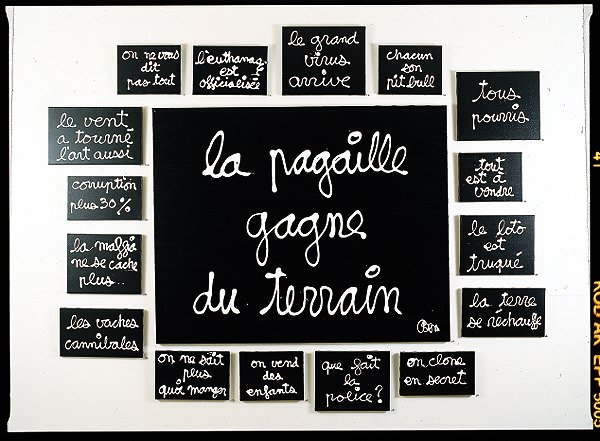 on ne vous
dit
pas tout
l'euthanasie
est
officialisée
le grand
virus
arrive
chacun
son
pit bull
tous
pourris
le vent
a tourné
l'art aussi
tout
est à
vendre
corruption
plus 30%
la pagaille
gagne
du terrain
Ben
le loto
est
truqué
la mafia
ne se cache
plus..
la terre
se réchauffe
les vaches
cannibales
on ne sait
plus
quoi manger
on vend
des
enfants
que fait
la
police?
on clone
en secret
41
KODAK EPP 5005